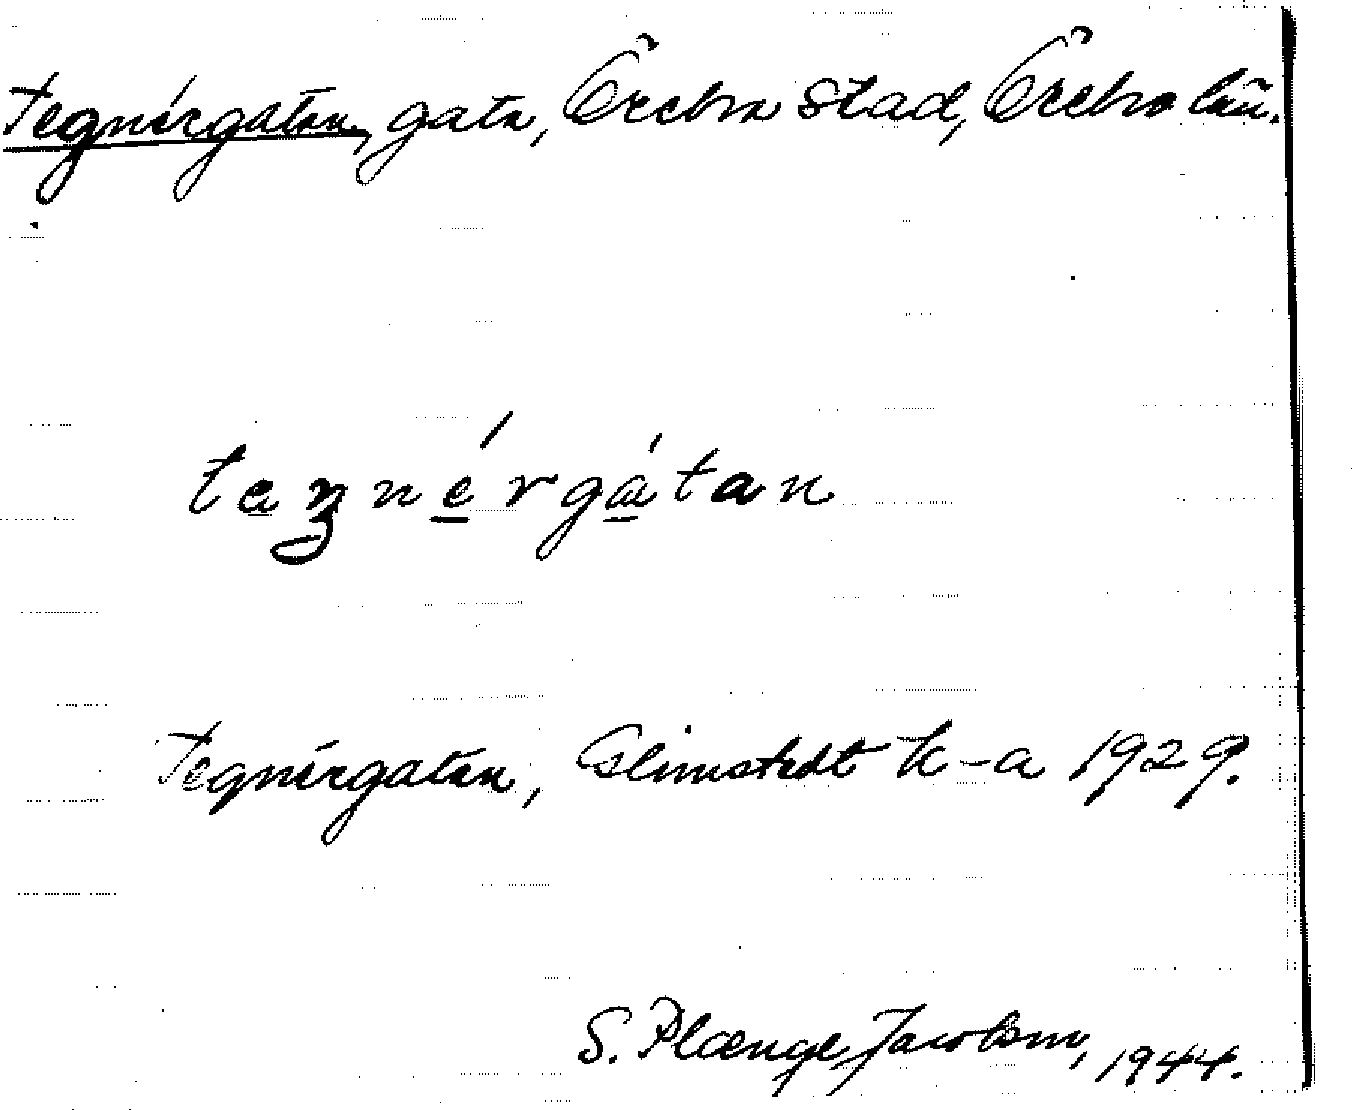 Tegnérgatan, gata, Örebro stad, Örebro län.
teŋnérgátan
Tegnérgatan, Glimstedt k-a 1929.
S. Plænge Jacobson, 1944.